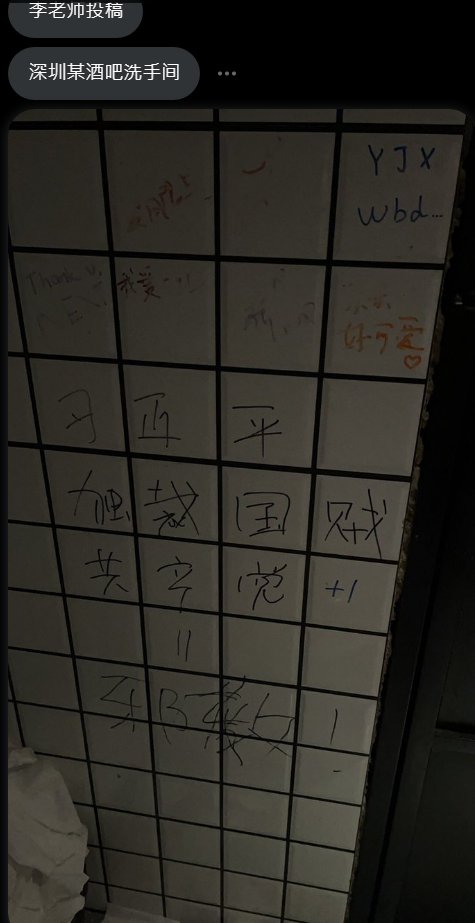 李老师投稿
深圳某酒吧洗手间
YJX
Wbd...
Thank
我爱
好可爱♡
习近平
独裁国贼
共产党 +1